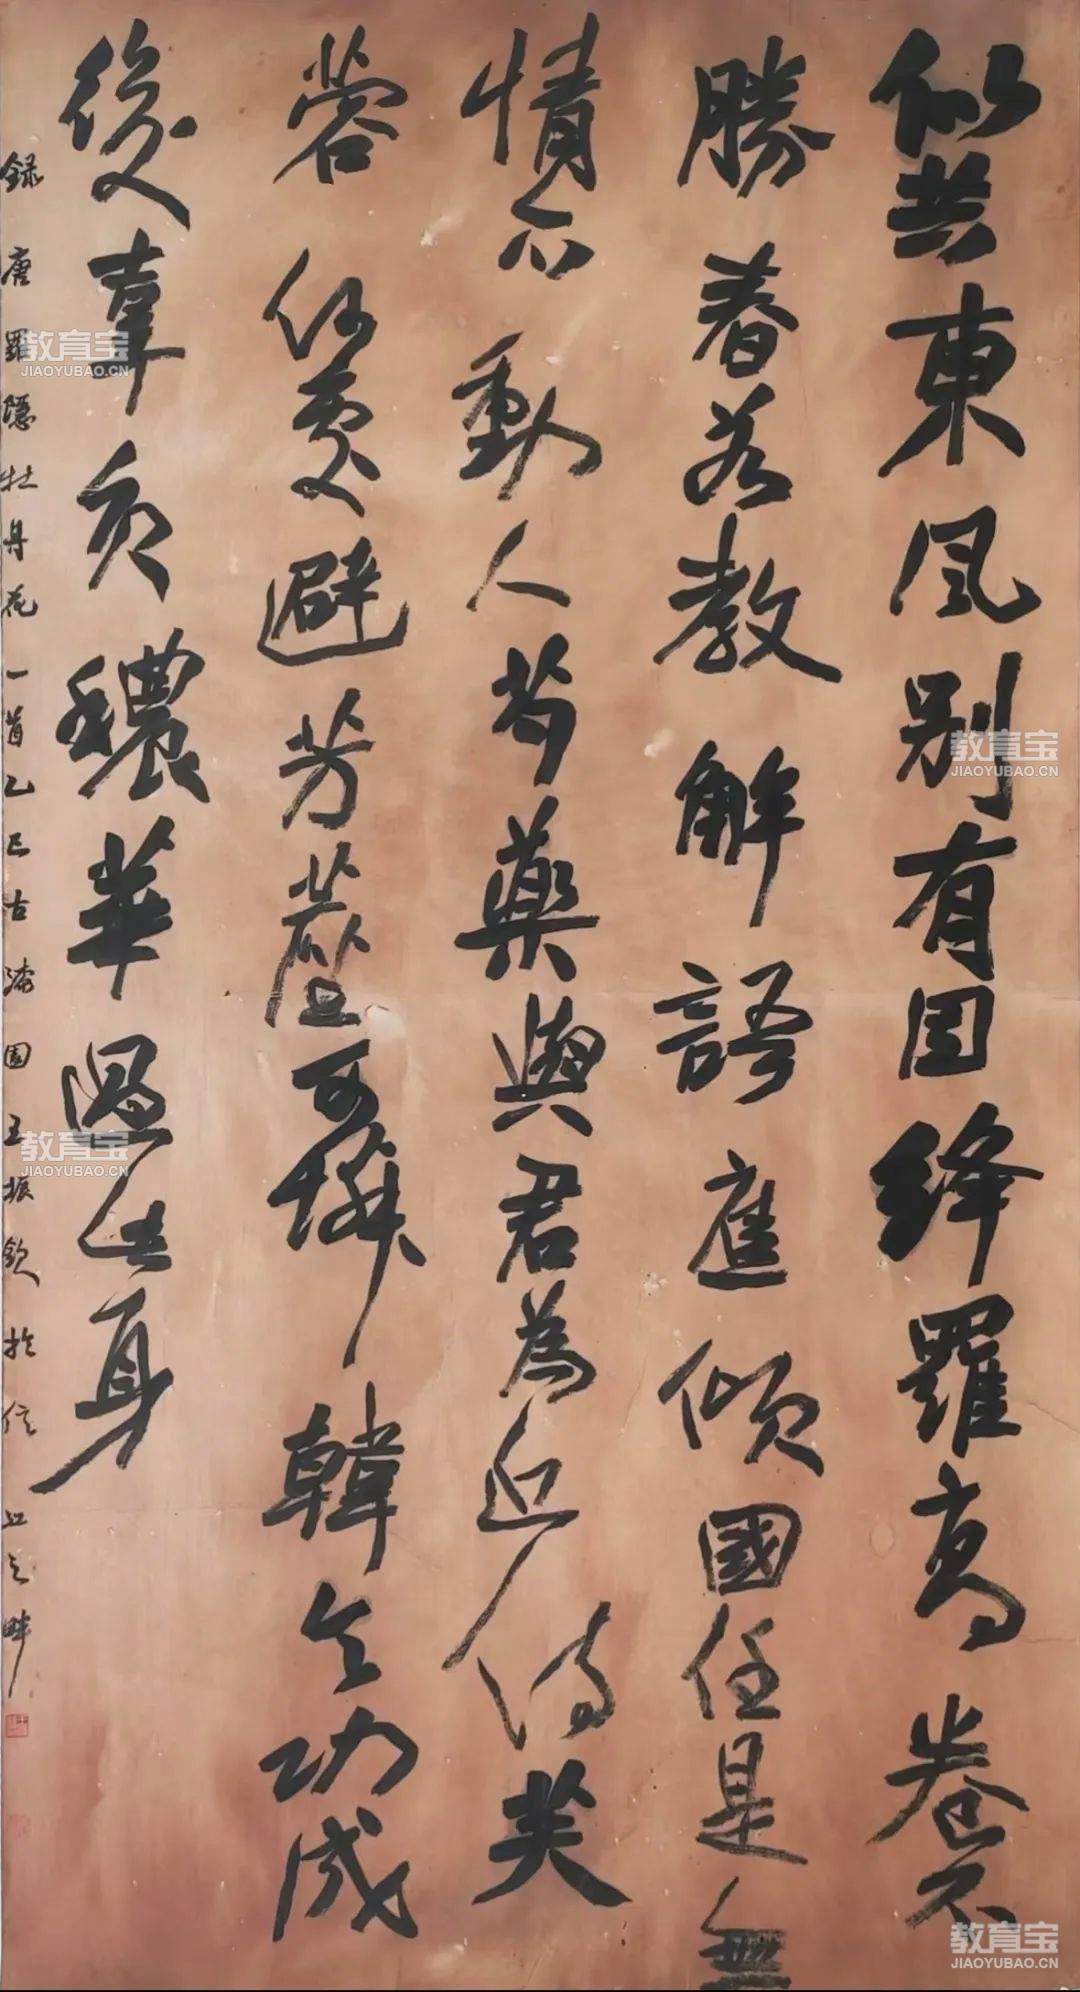 似共東風别有因絳羅高卷不
勝春若教解語應傾國任是無
情亦動人芍藥與君為近侍芙
蓉何處避芳塵可憐韓令功成
後辜負穠華過此身
録唐羅隱牡丹花一首乙巳古園王振欽於信江之畔
教育宝
JIAOYUBAO.CN
教育宝
JIAOYUBAO.CN
教育宝
JIAOYUBAO.CN
教育宝
JIAOYUBAO.CN